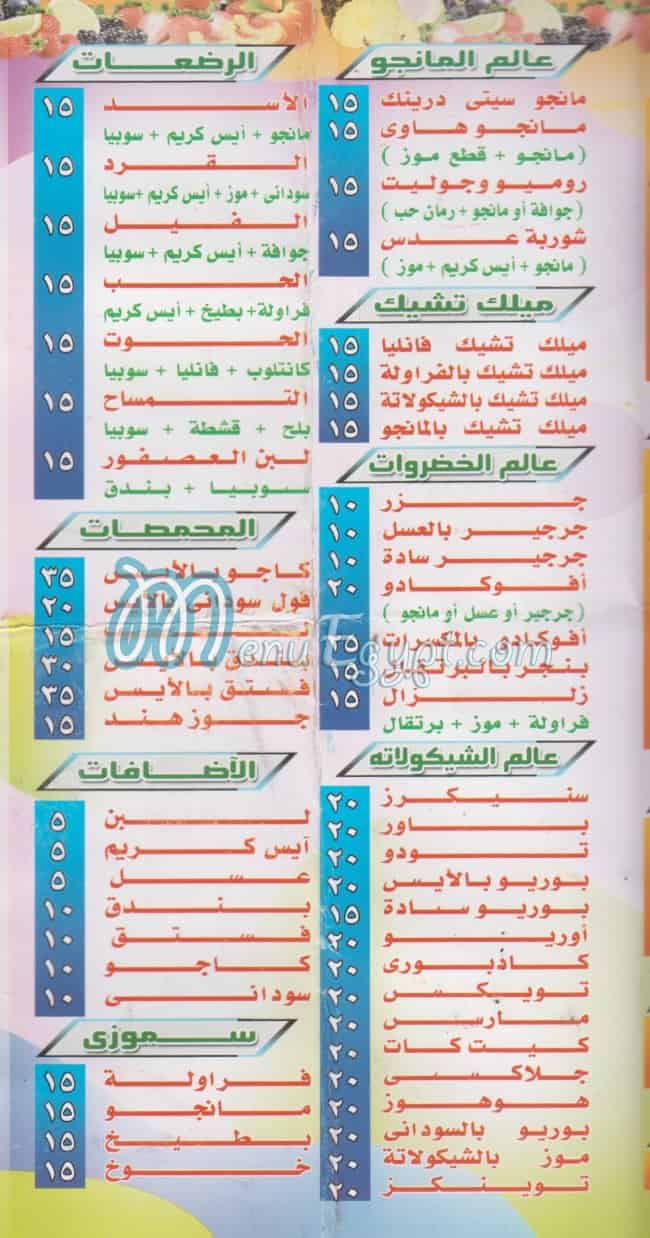 عالم المانجو
مانجو سيتى درينك ١٥
مانجو هاوى ١٥
( مانجو + قطع موز )
روميو وجوليت ١٥
( جوافة أو مانجو + رمان حب )
شوربة عدس ١٥
( مانجو + أيس كريم + موز )
ميلك تشيك
ميلك تشيك فانليا ١٥
ميلك تشيك بالفراولة ١٥
ميلك تشيك بالشيكولاتة ١٥
ميلك تشيك بالمانجو ١٥
عالم الخضروات
جزر ١٠
جرجير بالعسل ١٠
جرجير سادة ١٠
أفوكادو ٢٠
( جرجير أو عسل أو مانجو )
أفوكادو بالمكسرات ٢٥
بنجر بالبرتقال ١٥
زلزال ١٥
فراولة + موز + برتقال
عالم الشيكولاته
سنيكرز ٢٠
باور ٢٠
تودو ٢٠
بوريو بالأيس ٢٠
بوريو سادة ١٥
أوريو ٢٠
كادبورى ٢٠
تويكس ٢٠
مارس ٢٠
كيت كات ٢٠
جلاكسى ٢٠
هوهوز ٢٠
بوريو بالسودانى ٢٠
موز بالشيكولاتة ٢٠
توينكز ٢٠
الرضعات
الأسد ١٥
مانجو + أيس كريم + سوبيا
القرد ١٥
سودانى + موز + أيس كريم +سوبيا
الفيل ١٥
جوافة + أيس كريم + سوبيا
الحب ١٥
فراولة+ بطيخ + أيس كريم
الحوت ١٥
كانتلوب + فانليا + سوبيا
التمساح ١٥
بلح + قشطة + سوبيا
لبن العصفور ١٥
سوبيا + بندق
المحمصات
كاجو بالأيس ٣٥
فول سودانى بالأيس ٢٠
١٥
بالأيس ٣٠
فستق بالأيس ٣٥
جوز هند ١٥
الأضافات
لبن ٥
آيس كريم ٥
عسل ٥
بندق ١٠
فستق ١٠
كاجو ١٠
سودانى ١٠
سموزى
فراولة ١٥
مانجو ١٥
بطيخ ١٥
خوخ ١٥
MenuEgypt.com